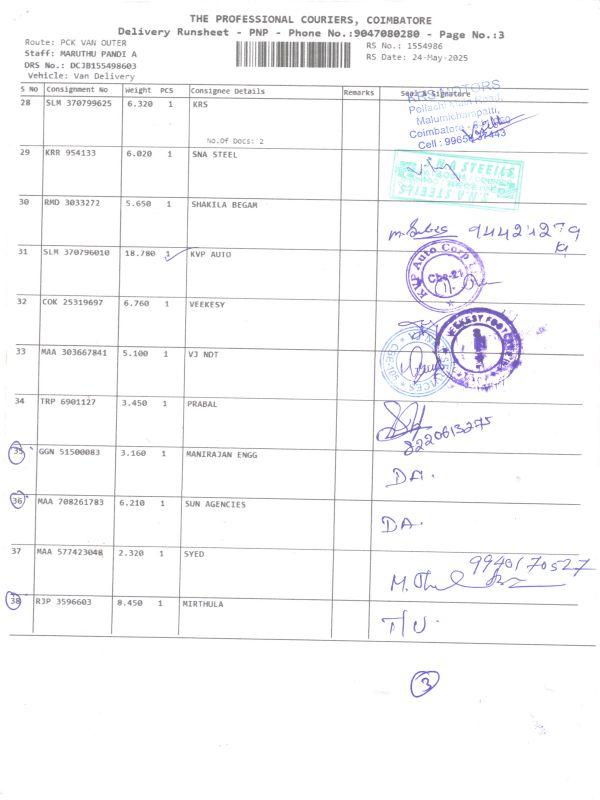 THE PROFESSIONAL COURIERS, COIMBATORE
Delivery Runsheet - PNP - Phone No.:9047080280 - Page No.:3
Route: PCK VAN OUTER
Staff: MARUTHU PANDI A
DRS No.: DCJB155498603
Vehicle: Van Delivery
RS No.: 1554986
RS Date: 24-May-2025
S No Consignment No Weight PCS Consignee Details Remarks Seal & Signature
28 SLM 370799625 6.320 1 KRS
No.Of Docs: 2
KRS MOTORS
Pollachi Main Road,
Malumichampatti,
Coimbatore
Cell :
29 KRR 954133 6.020 1 SNA STEEL
S.N.A STEEILS
30 RMD 3033272 5.650 1 SHAKILA BEGAM
31 SLM 370796010 18.780 1 KVP AUTO
KVP Auto Corp
Cbe-21
32 COK 25319697 6.760 1 VEEKESY
33 MAA 303667841 5.100 1 VJ NDT
34 TRP 6901127 3.450 1 PRABAL
8220613275
35 GGN 51500083 3.160 1 MANIRAJAN ENGG
DA.
36 MAA 708261783 6.210 1 SUN AGENCIES
DA.
37 MAA 577423048 2.320 1 SYED
9940170527
38 RJP 3596603 8.450 1 MIRTHULA
T/U.
3